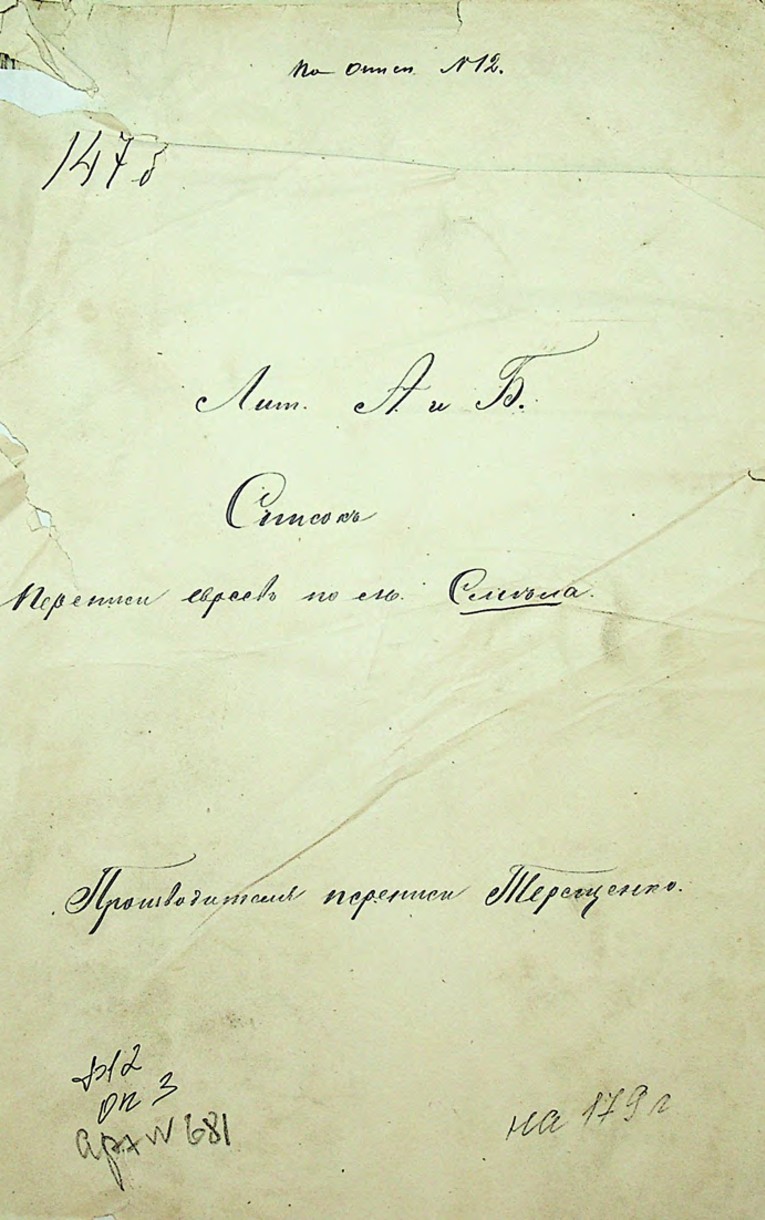 По описи №12.
147 б
Лит. А и Б.
Списокъ
Переписи евреевъ по м. Смѣла.
Производителя переписи Терещенко.
оп 3
арх № 681
на 179 л